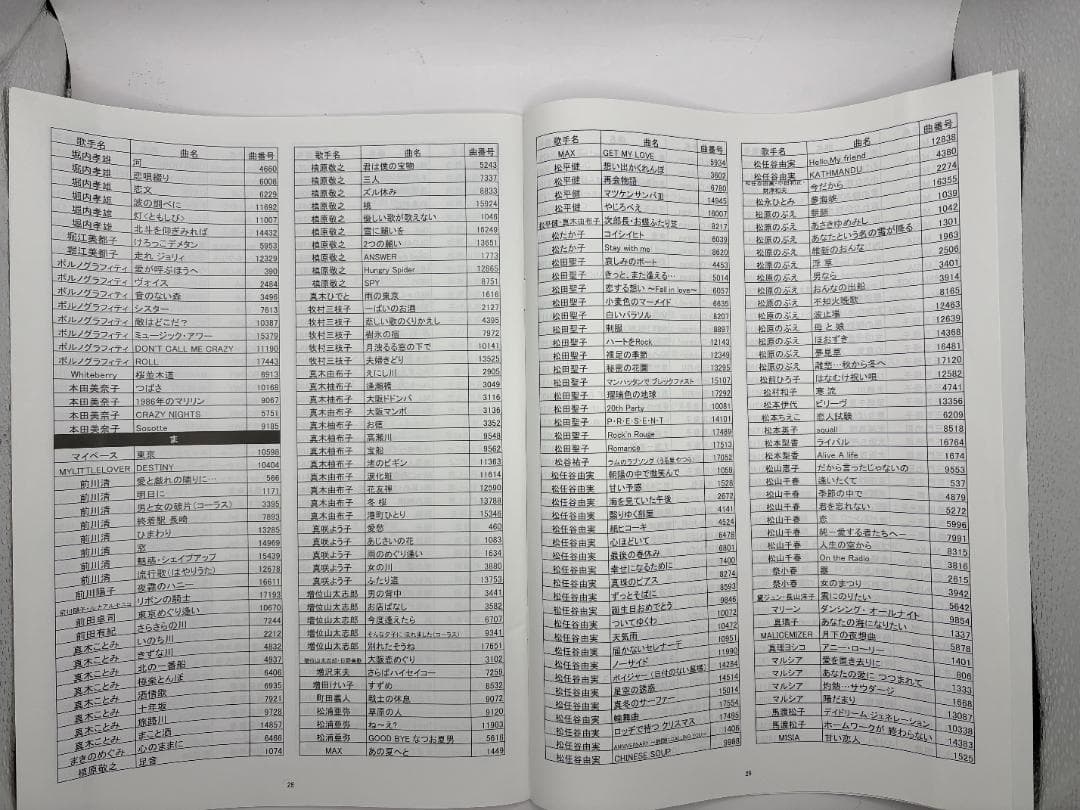 歌手名 曲名 曲番号
堀内孝雄 河 4660
堀内孝雄 恋唄綴り 6006
堀内孝雄 恋文 6229
堀内孝雄 波の調べに 11692
堀内孝雄 灯<ともしび> 11007
堀内孝雄 北斗を仰ぎみれば 14432
堀江美都子 けろっこデメタン 5953
堀江美都子 走れ ジョリィ 12329
ポルノグラフィティ 愛が呼ぶほうへ 390
ポルノグラフィティ ヴォイス 2484
ポルノグラフィティ 音のない森 3496
ポルノグラフィティ シスター 7613
ポルノグラフィティ 敵はどこだ? 10387
ポルノグラフィティ ミュージック・アワー 15379
ポルノグラフィティ DON'T CALL ME CRAZY 11190
ポルノグラフィティ ROLL 17443
Whiteberry 桜並木道 6913
本田美奈子 つばさ 10168
本田美奈子 1986年のマリリン 9067
本田美奈子 CRAZY NIGHTS 5751
本田美奈子 Sosotte 9185
ま
マイペース 東京 10598
MYLITTLELOVER DESTINY 10404
前川清 愛と戯れの隣りに… 566
前川清 明日に 1171
前川清 男と女の破片(コーラス) 3395
前川清 終着駅 長崎 7893
前川清 ひまわり 13285
前川清 窓 14969
前川清 魅惑・シェイプアップ 15439
前川清 流行歌(はやりうた) 12678
前川陽子 夜霧のハニー 16611
リボンの騎士 17193
前田卓司 東京めぐり逢い 10670
前田有紀 さらさらの川 7244
真木ことみ いのち川 2212
真木ことみ きずな川 4832
真木ことみ 北の一番船 4937
真木ことみ 極楽とんぼ 6406
真木ことみ 酒情歌 6935
真木ことみ 十年坂 7921
真木ことみ 旅路川 9728
真木ことみ まこと酒 14857
まきのめぐみ 心のままに 6466
槇原敬之 足音 1074
歌手名 曲名 曲番号
槇原敬之 君は僕の宝物 5243
槇原敬之 三人 7337
槇原敬之 ズル休み 8833
槇原敬之 桃 15924
槇原敬之 優しい歌が歌えない 1046
槇原敬之 雷に願いを 16249
槇原敬之 2つの願い 13651
槇原敬之 ANSWER 1773
槇原敬之 Hungry Spider 12865
槇原敬之 SPY 8751
真木ひでと 雨の東京 1616
牧村三枝子 一ぱいのお酒 2127
牧村三枝子 悲しい歌のくりかえし 4395
牧村三枝子 樹氷の宿 7972
牧村三枝子 月洩るる窓の下で 10141
牧村三枝子 夫婦きどり 13525
真木由布子 えにし川 2905
真木柚布子 逢瀬橋 3049
真木柚布子 大阪ドドンパ 3116
真木柚布子 大阪マンボ 3136
真木柚布子 お徳 3352
真木柚布子 高瀬川 9548
真木柚布子 宝船 9562
真木柚布子 渚のビギン 11363
真木由布子 涙化粧 11614
真木由布子 花友禅 12590
真木由布子 冬桜 13788
真木由布子 港町ひとり 15346
真咲よう子 愛愁 460
真咲よう子 あじさいの花 1083
真咲よう子 雨のめぐり逢い 1634
真咲よう子 女の川 3880
真咲よう子 ふたり道 13753
増位山太志郎 男の背中 3441
増位山太志郎 お店ばなし 3582
増位山太志郎 今度逢えたら 6707
増位山太志郎 そんな夕子に惚れました(コーラス) 9341
増位山太志郎 別れたそうね 17651
大阪恋めぐり 3102
増沢末夫 さらばハイセイコー 7259
増田けい子 すずめ 8532
町田義人 戦士の休息 9072
松浦亜弥 草原の人 9120
松浦亜弥 ね~え? 11903
松浦亜弥 GOOD BYE なつお夏男 5616
MAX あの夏へと 1449
28
歌手名 曲名 曲番号
MAX GET MY LOVE 5934
松平健 想い出かくれんぼ 3602
松平健 再会物語 6780
松平健 マツケンサンバⅢ 14945
松平健 やじろべえ 16007
松平健・真木由布子 次郎長・お蝶ふたり笠 8217
松たか子 コイシイヒト 6039
松たか子 Stay with me 8620
松田聖子 哀しみのボート 4453
松田聖子 きっと、また逢える… 5014
松田聖子 恋する想い ~Fall in love~ 6057
松田聖子 小麦色のマーメイド 6635
松田聖子 白いパラソル 8207
松田聖子 制服 8897
松田聖子 ハートをRock 12143
松田聖子 裸足の季節 12349
松田聖子 秘密の花園 13295
松田聖子 マンハッタンでブレックファスト 15107
松田聖子 瑠璃色の地球 17292
松田聖子 20th Party 10081
松田聖子 P・R・E・S・E・N・T 14101
松田聖子 Rock'n Rouge 17489
松田聖子 Romance 17513
松谷祐子 ラムのラブソング(うる星やつら) 17052
松任谷由実 朝陽の中で微笑んで 1059
松任谷由実 甘い予感 1528
松任谷由実 海を見ていた午後 2672
松任谷由実 翳りゆく部屋 4141
松任谷由実 紙ヒコーキ 4524
松任谷由実 心ほどいて 6478
松任谷由実 最後の春休み 6801
松任谷由実 幸せになるために 7400
松任谷由実 真珠のピアス 8274
松任谷由実 ずっとそばに 8593
松任谷由実 誕生日おめでとう 9846
松任谷由実 ついてゆくわ 10072
松任谷由実 天気雨 10472
松任谷由実 届かないセレナーデ 10951
松任谷由実 ノーサイド 11990
松任谷由実 ボイジャー(日付のない墓標) 14284
松任谷由実 星空の誘惑 14514
松任谷由実 真冬のサーファー 15014
松任谷由実 輪舞曲 17554
松任谷由実 ロッヂで待つ クリスマス 17495
松任谷由実 ANNIVERSARY 1406
松任谷由実 CHINESE SOUP 9988
歌手名 曲名 曲番号
松任谷由実 Hello,My friend 12838
松任谷由実 KATHMANDU 4380
松任谷由実・小田和正・財津和夫 今だから 2274
松永ひとみ 夢海峡 16355
松原のぶえ 朝顔 1039
松原のぶえ あさきゆめみし 1042
松原のぶえ あなたという名の雪が降る 1301
松原のぶえ 維新のおんな 1963
松原のぶえ 浮草 2506
松原のぶえ 男なら 3401
松原のぶえ おんなの出船 3914
松原のぶえ 不知火晩歌 8165
松原のぶえ 波止場 12463
松原のぶえ 母と娘 12639
松原のぶえ ほおずき 14368
松原のぶえ 夢見草 16481
松原のぶえ 離愁…秋から冬へ 17120
松前ひろ子 はなむけ祝い唄 12582
松村和子 寒流 4741
松本伊代 ビリーヴ 13356
松本ちえこ 恋人試験 6209
松本英子 squall 8518
松本梨香 ライバル 16764
松本梨香 Alive A life 1674
松山恵子 だから言ったじゃないの 9553
松山千春 逢いたくて 537
松山千春 季節の中で 4879
松山千春 君を忘れない 5272
松山千春 恋 5996
松山千春 純―愛する者たちへ― 7991
松山千春 人生の空から 8315
松山千春 On the Radio 3816
祭小春 2615
祭小春 女のまつり 3942
黛ジュン・長山洋子 霞にのりたい 5642
マリーン ダンシング・オールナイト 9854
真璃子 あなたの海になりたい 1337
MALICEMIZER 月下の夜想曲 5878
真理ヨシコ アニー・ローリー 1401
マルシア 愛を置き去りに 806
マルシア あなたの愛に つつまれて 1333
マルシア 灼熱…サウダージ 1668
マルシア 陽だまり 13087
馬渡松子 デイドリーム ジェネレーション 10338
馬渡松子 ホームワークが 終わらない 14383
MISIA 甘い恋人 1525
29